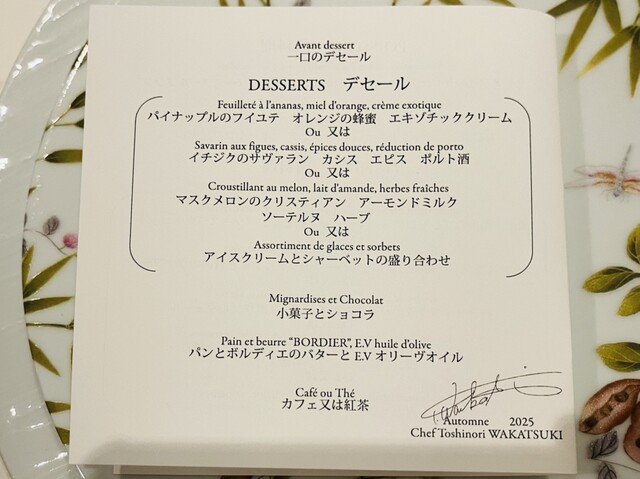 Avant dessert
一口のデセール
DESSERTS デセール
Feuilleté à l'ananas, miel d'orange, crème exotique
パイナップルのフイユテ オレンジの蜂蜜 エキゾチッククリーム
Ou 又は
Savarin aux figues, cassis, épices douces, réduction de porto
イチジクのサヴァラン カシス エピス ポルト酒
Ou 又は
Croustillant au melon, lait d'amande, herbes fraîches
マスクメロンのクリスティアン アーモンドミルク
ソーテルヌ ハーブ
Ou 又は
Assortiment de glaces et sorbets
アイスクリームとシャーベットの盛り合わせ
Mignardises et Chocolat
小菓子とショコラ
Pain et beurre "BORDIER", E.V huile d'olive
パンとボルディエのバターと E.V オリーヴオイル
Café ou Thé
カフェ又は紅茶
Automne 2025
Chef Toshinori WAKATSUKI